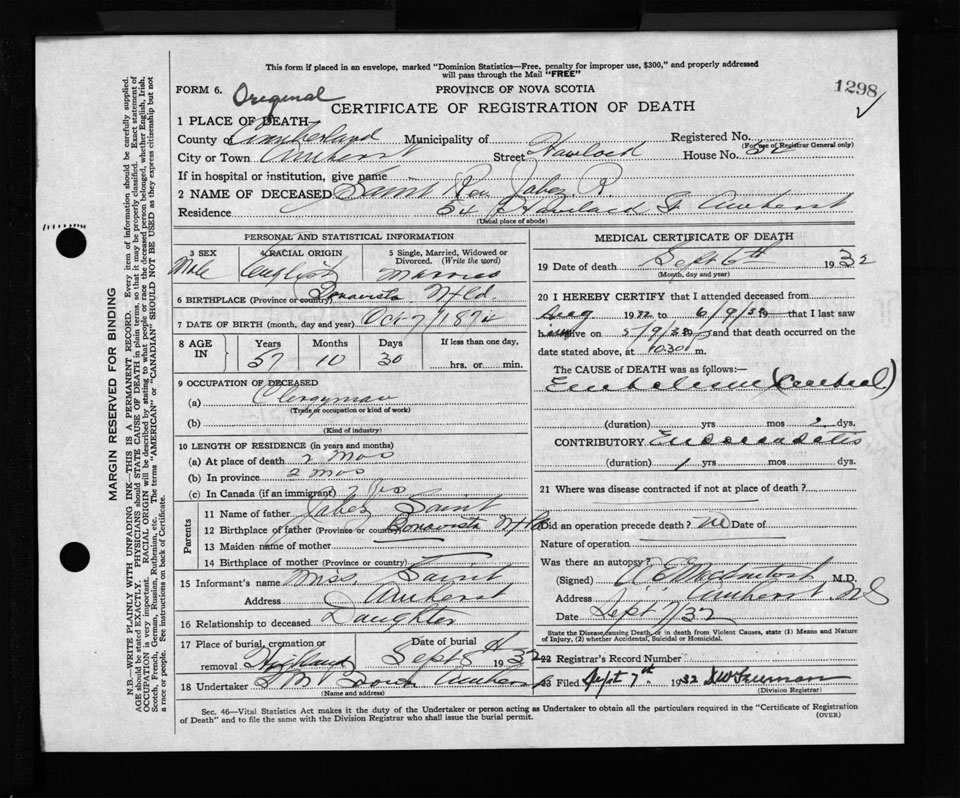 This form if placed in an envelope, marked "Dominion Statistics—Free, penalty for improper use, $300," and properly addressed
will pass through the Mail "FREE"
FORM 6. Original PROVINCE OF NOVA SCOTIA 1298
CERTIFICATE OF REGISTRATION OF DEATH
1 PLACE OF DEATH
County Cumberland Municipality of Registered No.
(For use of Registrar General only)
City or Town Amherst Street Havelock House No. 54
If in hospital or institution, give name
2 NAME OF DECEASED Saint Rev Jabez R.
Residence 54 Havelock St Amherst
(Usual place of abode)
PERSONAL AND STATISTICAL INFORMATION
3 SEX 4 RACIAL ORIGIN 5 Single, Married, Widowed or Divorced. (Write the word)
Male English Married
6 BIRTHPLACE (Province or country) Bonavista Nfld.
7 DATE OF BIRTH (month, day and year) Oct 7/1874
8 AGE IN Years Months Days If less than one day,
57 10 30 hrs. or min.
9 OCCUPATION OF DECEASED
(a) Clergyman
(Trade or occupation or kind of work)
(b)
(Kind of industry)
10 LENGTH OF RESIDENCE (in years and months)
(a) At place of death 2 mos
(b) In province 2 mos
(c) In Canada (if an immigrant)
Parents
11 Name of father Jabez Saint
12 Birthplace of father (Province or country) Bonavista Nfld
13 Maiden name of mother
14 Birthplace of mother (Province or country)
15 Informant's name Miss Saint
Address Amherst
16 Relationship to deceased Daughter
17 Place of burial, cremation or removal Highland Date of burial Sept 8th 1932
18 Undertaker Amherst
(Name and address)
MEDICAL CERTIFICATE OF DEATH
19 Date of death Sept 6th 1932
(Month, day and year)
20 I HEREBY CERTIFY that I attended deceased from
Aug 1932 to 6/9/32 that I last saw
him alive on 5/9/32 and that death occurred on the
date stated above, at 1030 m.
The CAUSE OF DEATH was as follows:—
Embolism (Cerebral)
(duration) yrs mos 2 dys.
CONTRIBUTORY Endocarditis
(duration) 1 yrs mos dys.
21 Where was disease contracted if not at place of death?
Did an operation precede death? no Date of
Nature of operation
Was there an autopsy?
(Signed) McIntosh M.D.
Address Amherst NS
Date Sept 7/32
State the Disease causing Death, or in death from Violent Causes, state (1) Means and Nature of Injury, (2) whether Accidental, Suicidal or Homicidal.
22 Registrar's Record Number
23 Filed Sept 7th 1932
(Division Registrar)
Sec. 46—Vital Statistics Act makes it the duty of the Undertaker or person acting as Undertaker to obtain all the particulars required in the "Certificate of Registration
of Death" and to file the same with the Division Registrar who shall issue the burial permit. (OVER)
MARGIN RESERVED FOR BINDING
N.B.—WRITE PLAINLY WITH UNFADING INK—THIS IS A PERMANENT RECORD. Every item of information should be carefully supplied.
AGE should be stated EXACTLY. PHYSICIANS should STATE CAUSE OF DEATH in plain terms, so that it may be properly classified. Exact statement of
OCCUPATION is very important. RACIAL ORIGIN will be described by stating to what people or race the deceased person belonged, whether English, Irish,
Scotch, French, German, Russian, Ruthenian, etc. The terms "AMERICAN" or "CANADIAN" SHOULD NOT BE USED as they express citizenship but not
a race or people. See instructions on back of Certificate.